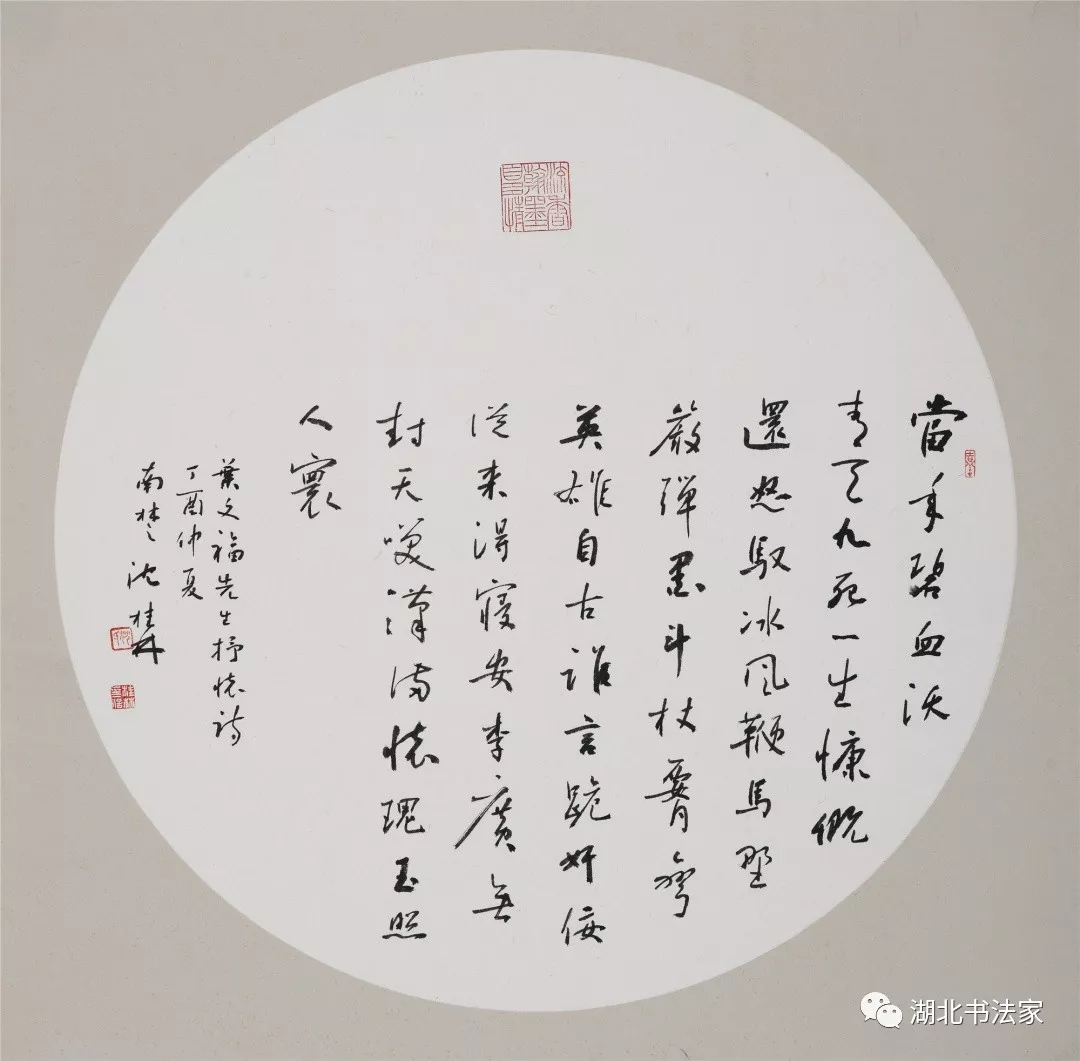 當年碧血沃
青天九死一生慷慨
還怒馭冰風鞭馬
嚴彈墨斗杖胥彎
英雄自古誰言跪奸佞
從来得寢安李廣無
封天漢滿懷瑰玉照
人寰
葉文福先生抒懷詩
丁酉仲夏
南楚沈桂林
湖北书法家